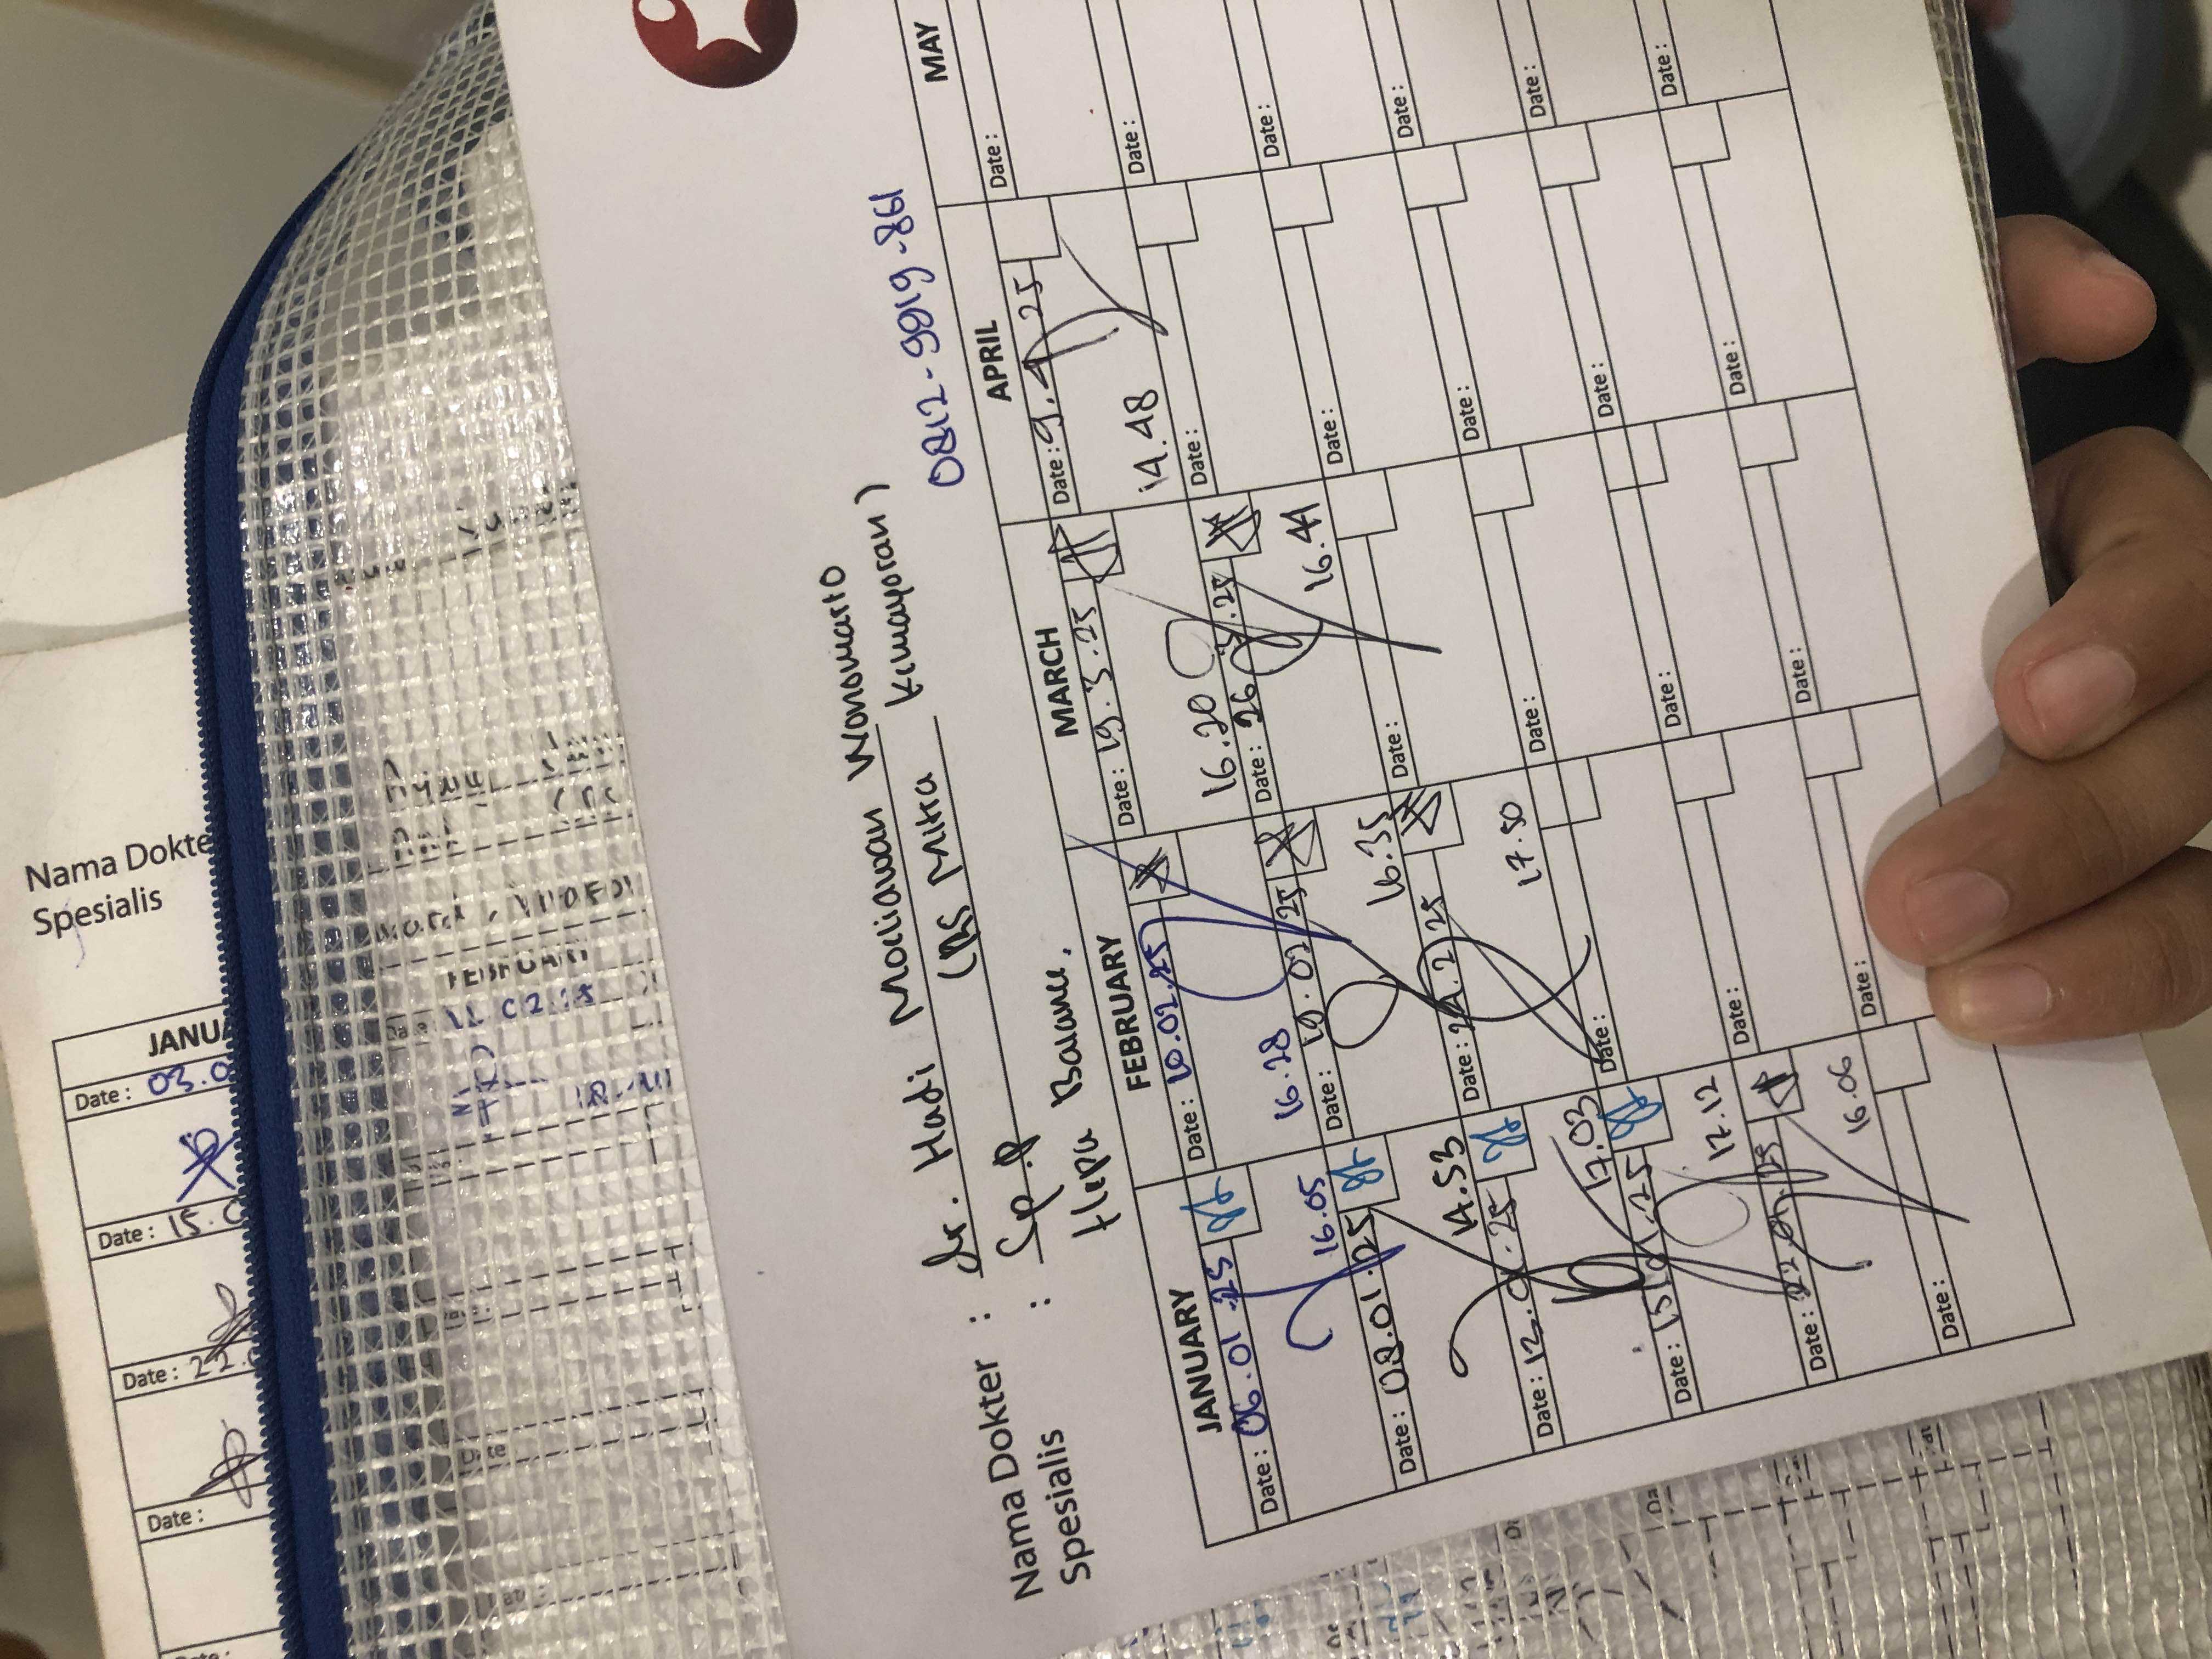 Nama Dokter : dr. Hadi Mocliawan Wonomarto
Spesialis : Sp.P (RS Mitra Kemayoran)
Hepa Balance,
0812-9919-861
JANUARY FEBRUARY MARCH APRIL MAY
Date : 06.01.25
16.05
Date : 08.01.25
14.53
Date : 12.01.25
17.03
Date : 15.01.25
17.12
Date : 22.01.25
16.06
Date :
Date : 10.02.25
16.28
Date : 19.02.25
16.35
Date : 24.2.25
17.50
Date :
Date :
Date :
Date : 19.3.25
16.20
Date : 26.3.25
16.41
Date :
Date :
Date :
Date :
Date : 9.4.25
14.48
Date :
Date :
Date :
Date :
Date :
Date :
Date :
Date :
Date :
Date :
Date :
Nama Dokte
Spesialis
JANUA
Date : 03.0
Date : 15.0
Date : 22.
Date :
FEBRUARY